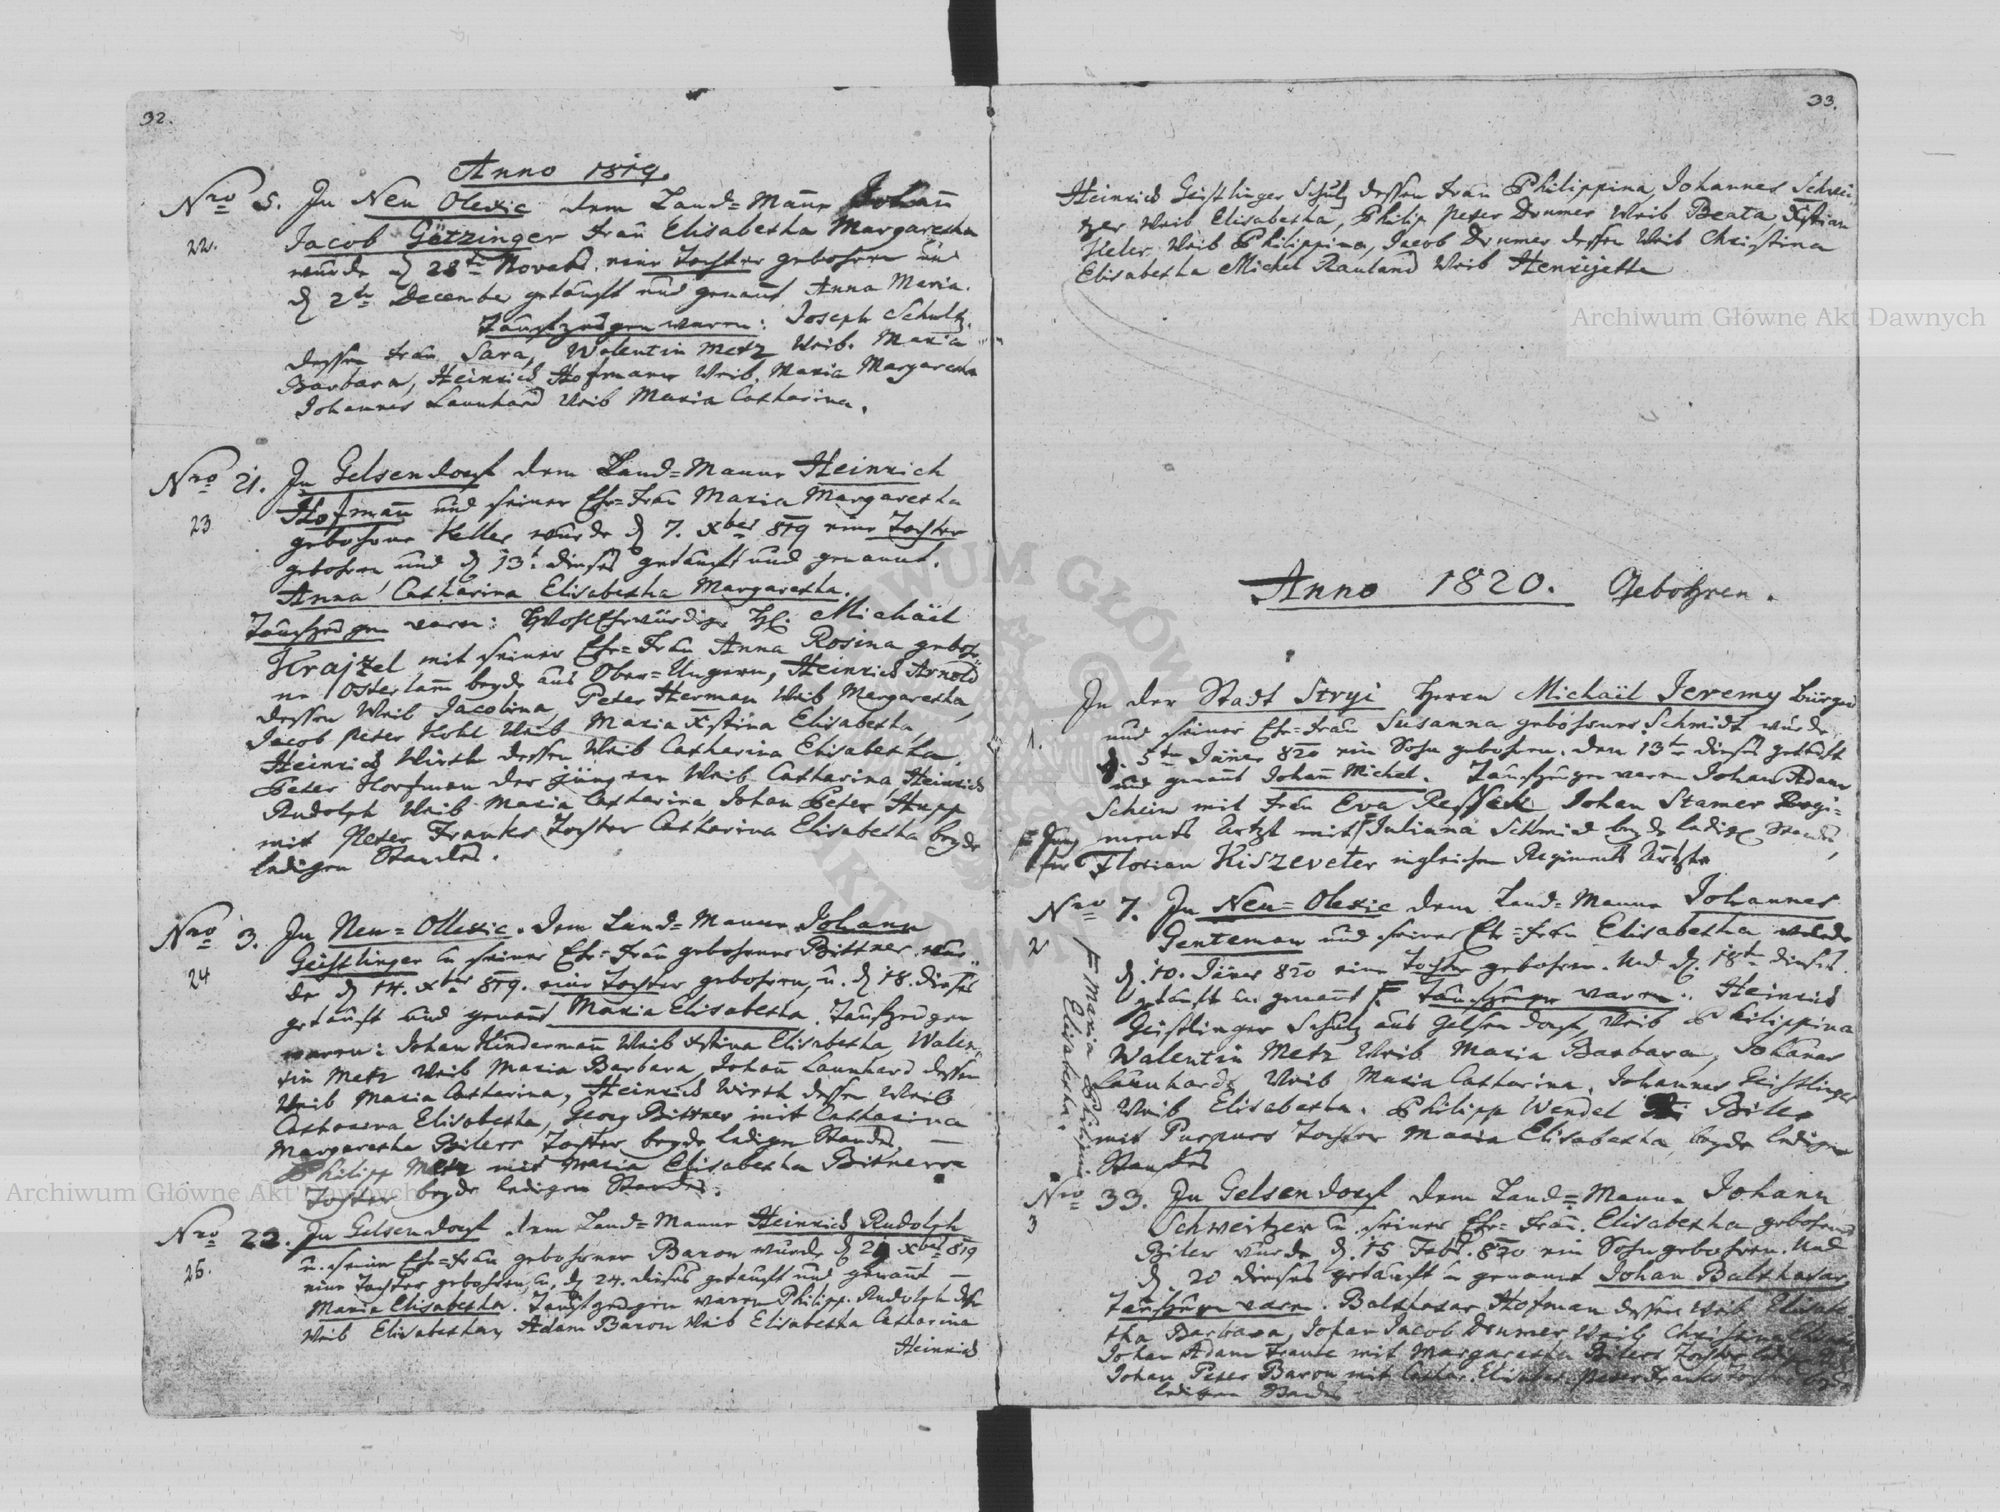 32.
Anno 1819.
Nro 5. In Neu Olexic dem Land=Mann Johann
22. Jacob Götzinger Frau Elisabetha Margaretha
wurde d 28ten Novebr. eine Tochter gebohren und
d 2te December getauft und genant Anna Maria.
Taufzeugen waren: Joseph Schultz,
dessen Frau Sara, Walentin Metz Weib. Maria
Barbara, Heinrich Hofmann Weib. Maria Margaretha
Johannes Launhard Weib Maria Catharina.
Nro 21. In Gelsendorf dem Land=Manne Heinrich
23 Hofmann und seiner Ehe=Frau Maria Margaretha
gebohrne Keller wurde d 7. Xber 819 eine Tochter
gebohren und d 13t dieses getauft und genannt.
Anna Catharina Elisabetha Margaretha.
Taufzeugen waren: WohlEhrwürdige H. Michäel
Krajzel mit seiner Ehe=Frau Anna Rosina geboh=
ne Osterlam beyde aus Ober=Ungern, Heinrich Arnold
dessen Weib Jacobina, Peter Herman Weib Margaretha,
Jacob Peter Kohl Weib Maria Xstina Elisabetha,
Heinrich Wirth dessen Weib Catharina Elisabetha
Peter Horfman der jüngere Weib Catharina, Heinrich
Rudolph Weib Maria Catharina, Johan Peter Hupp
mit Peter Franks Tochter Catharina Elisabetha beyde
ledigen Standes.
Nro 3. In Neu=Ollexic. Dem Land=Manne Johann
24 Geistlinger u seiner Ehe=Frau gebohrner Bittner wur=
de d 14. Xber 819. eine Tochter gebohren, u. d 18. dieses
getauft und genant Maria Elisabetha. Taufzeugen
waren: Johan Kindermann Weib Xstina Elisabetha, Walen=
tin Metz Weib Maria Barbara, Johan Launhard dessen
Weib Maria Catharina, Heinrich Wirth dessen Weib
Catharina Elisabetha, Georg Bittner mit Catharina
Margaretha Bilers Tochter beyde ledigen Standes, —
Philipp Metz mit Maria Elisabetha Bitners
Tochter beyde ledigen Standes.
Nro 22. In Gelsendorf dem Land=Manne Heinrich Rudolph
25. u. seiner Ehe=Frau gebohrner Baron wurde d 21 Xber 819
eine Tochter gebohren, u. d 24. dieses getauft und genant —
Maria Elisabetha. Taufzeugen waren Philipp Rudolph dess
Weib Elisabetha, Adam Baron Weib Elisabetha Catharina
Heinrich
33.
Heinrich Geistlinger Schulz dessen Frau Philippina, Johannes Schwei
tzer Weib Elisabetha, Philip Peter Drumer Weib Beata Xstian
Heler Weib Philippina, Jacob Drumer dessen Weib Christina
Elisabetha Michel Rauland Weib Henrijetta
Anno 1820. Gebohren.
In der Stadt Stryi Herrn Michäil Jeremy Bürger
1. und seiner Ehe=Frau Susanna gebohrner Schmidt wurde
d. 5ten Jäner 820 ein Sohn gebohren. den 13ten dieses getauft
und genant Johan Michel. Taufzeugen waren Johan Adam
Schein mit Frau Eva Johan Stamer Regi=
ments Artzt mit F Juliana Schmid beyde ledige Standes,
F Jung
fer
Florian Kiszeveter ingleichen Regiments Artzt
Nro 7. In Neu=Olexic dem Land=Manne Johannes
2 Genteman und seiner Ehe=Frau Elisabetha wurde
d. 10. Jäner 820 eine Tochter gebohren. Und d. 18ten dieses
getauft u. genant F. Taufzeuge waren: Heinrich
F Maria Philipina
Elisabetha.
Geistlinger Schulz aus Gelsendorf, Weib Philippina
Walentin Metz Weib Maria Barbara, Johanes
Launhards Weib Maria Catharina, Johannes Geistlinger
Weib Elisabetha. Philipp Wendel Biler
mit Purpurs Tochter Maria Elisabetha beyde ledigen
Standes
Nro 33. In Gelsendorf dem Land=Manne Johann
3 Schweitzer u. seiner Ehe=Frau. Elisabetha gebohrne
Biler wurde d. 15 Febr. 820 ein Sohn gebohren. Und
d 20 dieses getauft u genannt Johan Balthasar,
Taufzeuge waren. Balthasar Hofman dessen Weib Elisabe
tha Barbara, Johan Jacob Drumer Weib Christina
Johan Adam Franke mit Margaretha Bilers Tochter
Johan Peter Baron mit Cathar. Elisabet. Peter Franks Tochter
ledigen Standes
Archiwum Główne Akt Dawnych
Archiwum Główne Akt Dawnych